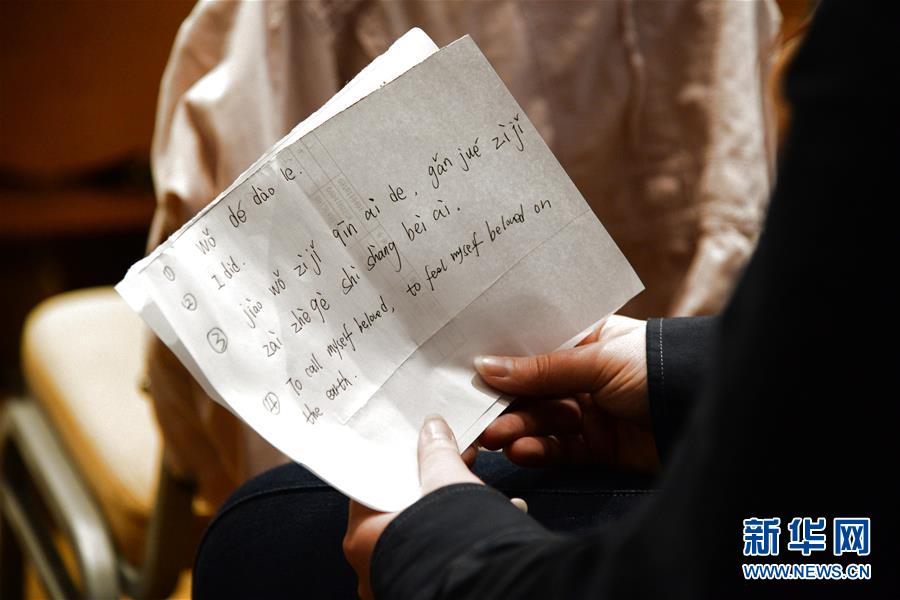 ① wǒ dé dào le.
② I did.
③ jiào wǒ zì jǐ qīn ài de, gǎn jué zì jǐ
zài zhè gè shì shàng bèi ài.
④ To call myself beloved, to feel myself beloved on
the earth.
新华网
WWW.NEWS.CN